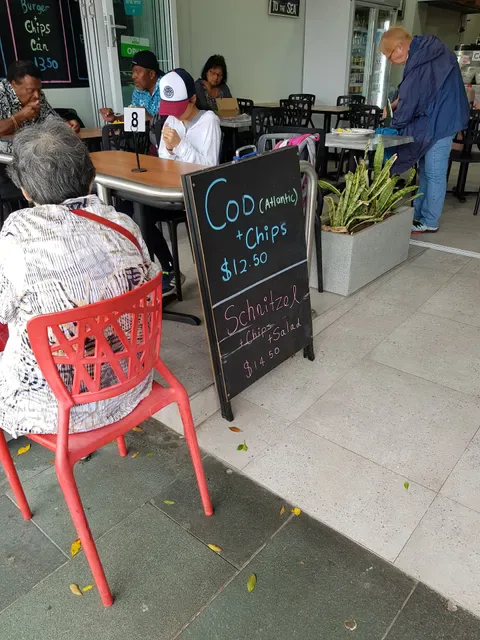 Burger
Chips
Can
$13.50
TO THE SEA
8
COD (Atlantic)
+ Chips
$12.50
Schnitzel
+Chips
+Salad
$14.50